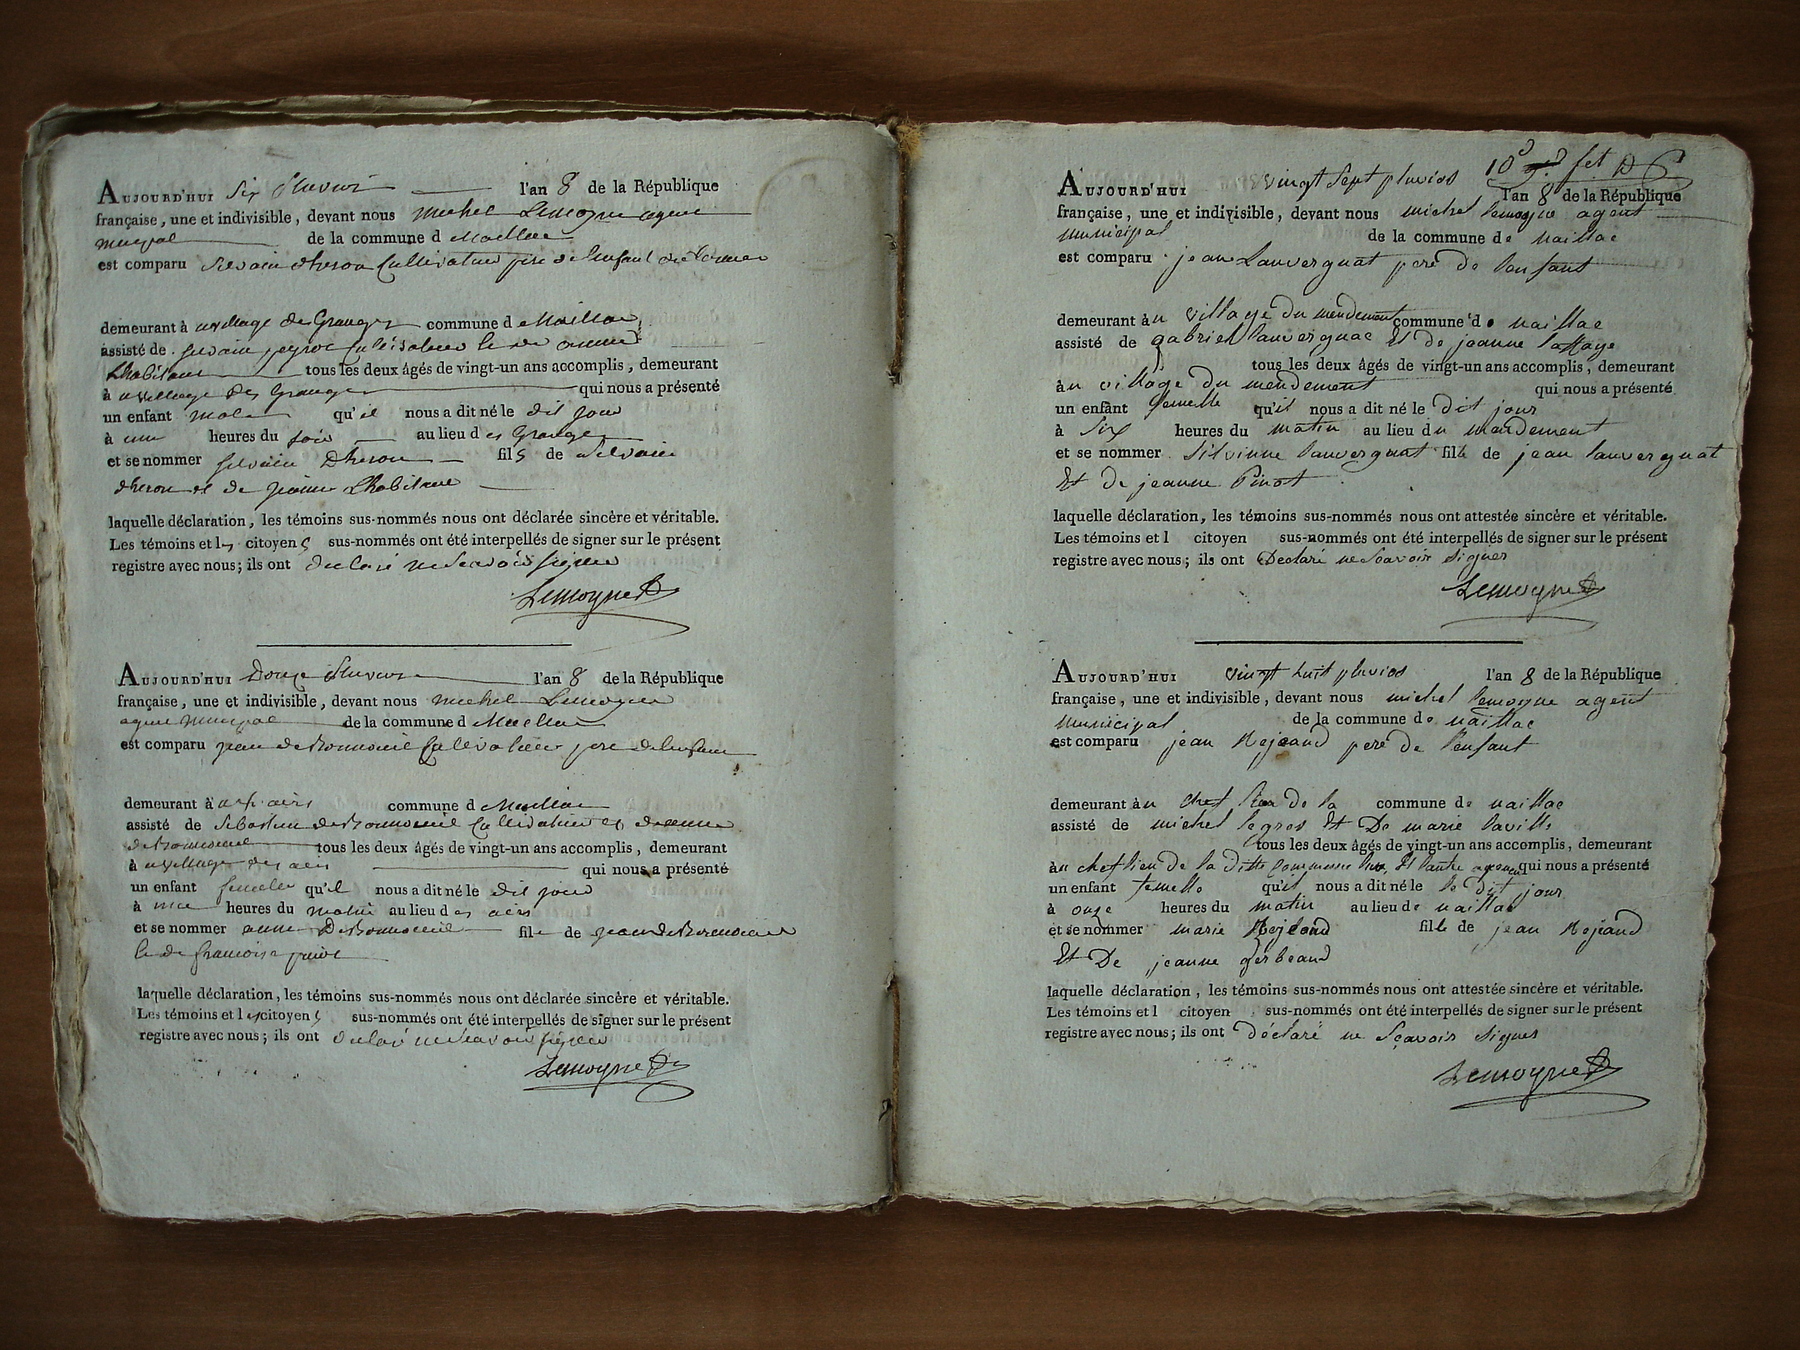 Aujourd'hui Six Pluviose l'an 8 de la République
française, une et indivisible, devant nous michel Lemoyne agent
municipal de la commune d Maillac
est comparu Silvain dheron Cultivateur père de l'enfant
demeurant à u village des Granges commune d Maillac
assisté de Silvain peyrot Cultivateur
Lhabitant tous les deux âgés de vingt-un ans accomplis, demeurant
à u village des Granges qui nous a présenté
un enfant male qu'il nous a dit né le dit jour
à une heures du soir au lieu d es Granges
et se nommer Silvain Dheron fils de Silvain
dheron et de Lhabitant
laquelle déclaration, les témoins sus-nommés nous ont déclarée sincère et véritable.
Les témoins et les citoyens sus-nommés ont été interpellés de signer sur le présent
registre avec nous; ils ont declaré ne Scavoir signer
Lemoyne
Aujourd'hui Douze Pluviose l'an 8 de la République
française, une et indivisible, devant nous michel Lemoyne
agent municipal de la commune d Maillac
est comparu jean deBonnoeuil Cultivateur pere de lenfant
demeurant à commune d Maillac
assisté de Sebastien deBonnoeuil Cultivateur
deBonnoeuil tous les deux âgés de vingt-un ans accomplis, demeurant
à u village des qui nous a présenté
un enfant femelle qu'il nous a dit né le dit jour
à heures du matin au lieu d es
et se nommer anne DeBonnoeuil fille de jean deBonnoeuil
de francoise
laquelle déclaration, les témoins sus-nommés nous ont déclarée sincère et véritable.
Les témoins et les citoyens sus-nommés ont été interpellés de signer sur le présent
registre avec nous; ils ont declaré ne Scavoir signer
Lemoyne
10
Aujourd'hui vingt Sept pluvios l'an 8 de la République
française, une et indivisible, devant nous michel lemoyne agent
municipal de la commune de naillac
est comparu jean Lauvergnat pere de lenfant
demeurant àu village du mendement commune d naillac
assisté de gabriel lauvergnat Et de jeanne laffaye
tous les deux âgés de vingt-un ans accomplis, demeurant
àu village du mendement qui nous a présenté
un enfant femelle qu'il nous a dit né le dit jour
à Six heures du matin au lieu du mendement
et se nommer Silvinne lauvergnat fille de jean lauvergnat
Et de jeanne Pinot
laquelle déclaration, les témoins sus-nommés nous ont attestée sincère et véritable.
Les témoins et l citoyen sus-nommés ont été interpellés de signer sur le présent
registre avec nous; ils ont Declaré ne Scavoir Signer
Lemoyne
Aujourd'hui vingt huit pluvios l'an 8 de la République
française, une et indivisible, devant nous michel lemoyne agent
municipal de la commune de naillac
est comparu jean Rejeaud pere de lenfant
demeurant àu chef lieu de la commune de naillac
assisté de michel legros Et De marie laville
tous les deux âgés de vingt-un ans accomplis, demeurant
àu chef lieu de la ditte commune Et lautre qui nous a présenté
un enfant femelle qu'il nous a dit né le le dit jour
à onze heures du matin au lieu de naillac
et se nommer marie Rejeaud fille de jean Rejeaud
Et De jeanne gerbeaud
laquelle déclaration, les témoins sus-nommés nous ont attestée sincère et véritable.
Les témoins et l citoyen sus-nommés ont été interpellés de signer sur le présent
registre avec nous; ils ont déclaré ne Sçavoir Signer
Lemoyne